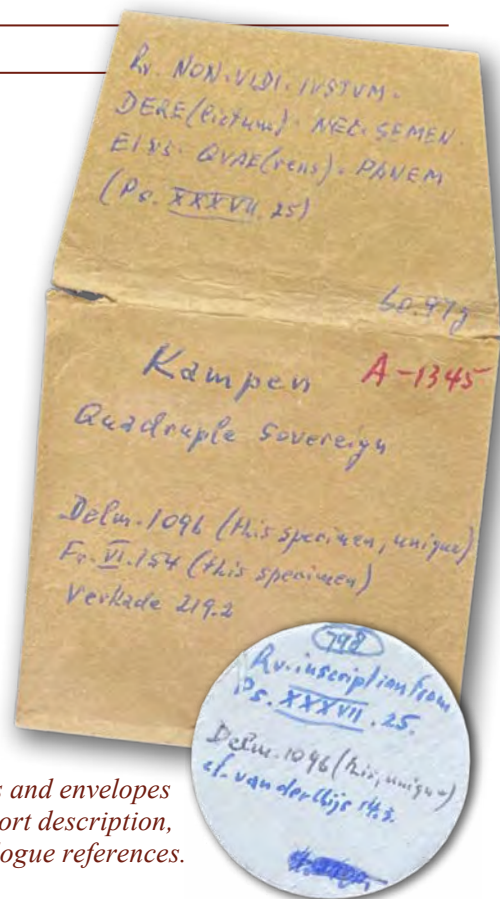 Rv. NON·VIDI·IVSTVM·
DERE(lictum)· NEC·SEMEN·
EIVS· QVAE(rens)· PANEM
(Ps. XXXVII. 25)
60.97g
Kampen A-1345
Quadruple Sovereign
Delm. 1096 (this specimen, unique)
Fr. VI. 154 (this specimen)
Verkade 219.2
798
Rv. inscription from
Ps. XXXVII. 25.
Delm. 1096 (this, unique)
cf. van der Chijs 14.3.
s and envelopes
ort description,
logue references.